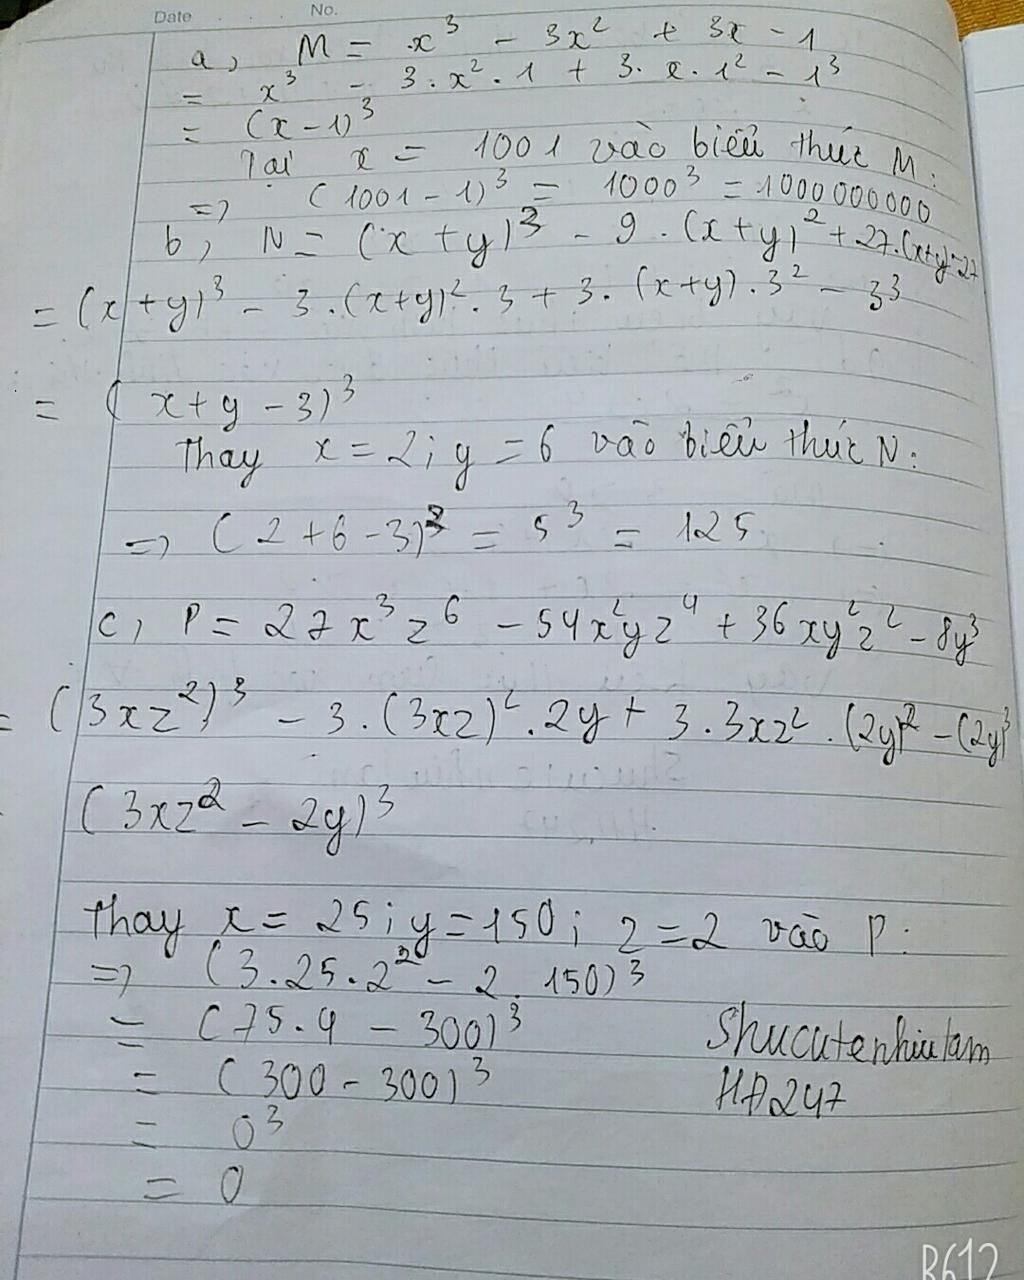 Date No.
a, M = x³ - 3x² + 3x - 1
= x³ - 3.x².1 + 3.x.1² - 1³
= (x - 1)³
Tại x = 1001 vào biểu thức M:
=> (1001 - 1)³ = 1000³ = 1000000000
b, N = (x + y)³ - 9.(x+y)² + 27.(x+y)-27
= (x + y)³ - 3.(x+y)².3 + 3.(x+y).3² - 3³
= (x + y - 3)³
Thay x = 2; y = 6 vào biểu thức N:
=> (2 + 6 - 3)³ = 5³ = 125
c, P = 27x³z⁶ - 54x²yz⁴ + 36xy²z² - 8y³
= (3xz²)³ - 3.(3xz)².2y + 3.3xz².(2y)² - (2y)³
(3xz² - 2y)³
Thay x = 25; y = 150; z = 2 vào P:
=> (3.25.2² - 2.150)³
= (75.4 - 300)³
Shucutenhiulam
= (300 - 300)³
HĐ247
= 0³
= 0
B612